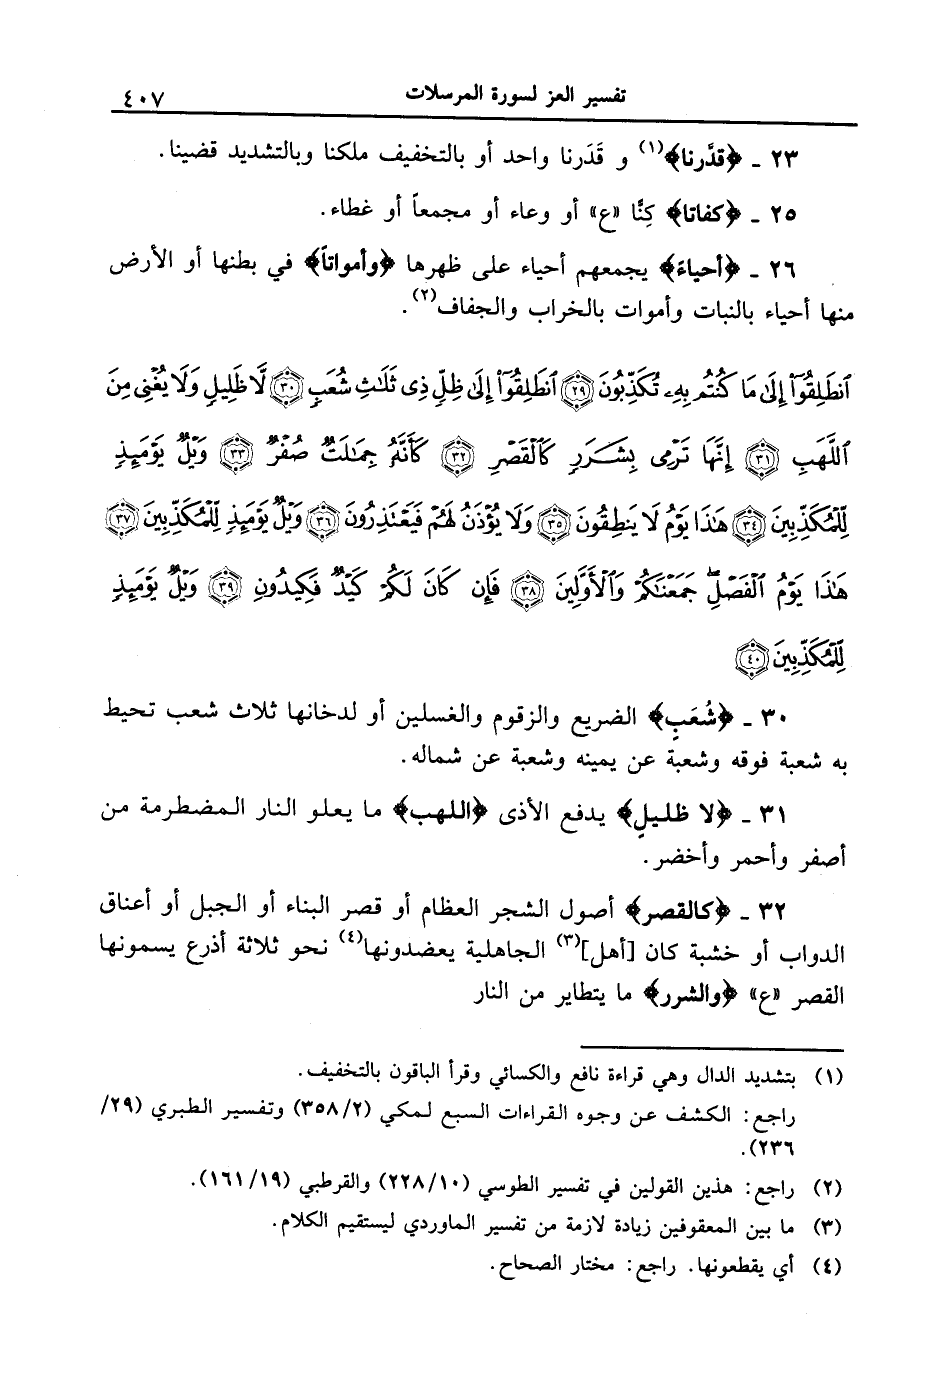 تفسير العز لسورة المرسلات
٤٠٧
٢٣ ـ ﴿قدَّرنا﴾(١) و قَدَرنا واحد أو بالتخفيف ملكنا وبالتشديد قضينا.
٢٥ ـ ﴿كفاتا﴾ كِنًّا «ع» أو وعاء أو مجمعاً أو غطاء.
٢٦ ـ ﴿أحياءً﴾ يجمعهم أحياء على ظهرها ﴿وأمواتاً﴾ في بطنها أو الأرض
منها أحياء بالنبات وأموات بالخراب والجفاف(٢).
ٱنطَلِقُوٓا۟ إِلَىٰ مَا كُنتُم بِهِۦ تُكَذِّبُونَ ﴿٢٩﴾ ٱنطَلِقُوٓا۟ إِلَىٰ ظِلٍّ ذِى ثَلَٰثِ شُعَبٍ ﴿٣٠﴾ لَّا ظَلِيلٍ وَلَا يُغْنِى مِنَ
ٱللَّهَبِ ﴿٣١﴾ إِنَّهَا تَرْمِى بِشَرَرٍ كَٱلْقَصْرِ ﴿٣٢﴾ كَأَنَّهُۥ جِمَٰلَتٌ صُفْرٌ ﴿٣٣﴾ وَيْلٌ يَوْمَئِذٍ
لِّلْمُكَذِّبِينَ ﴿٣٤﴾ هَٰذَا يَوْمُ لَا يَنطِقُونَ ﴿٣٥﴾ وَلَا يُؤْذَنُ لَهُمْ فَيَعْتَذِرُونَ ﴿٣٦﴾ وَيْلٌ يَوْمَئِذٍ لِّلْمُكَذِّبِينَ ﴿٣٧﴾
هَٰذَا يَوْمُ ٱلْفَصْلِ ۖ جَمَعْنَٰكُمْ وَٱلْأَوَّلِينَ ﴿٣٨﴾ فَإِن كَانَ لَكُمْ كَيْدٌ فَكِيدُونِ ﴿٣٩﴾ وَيْلٌ يَوْمَئِذٍ
لِّلْمُكَذِّبِينَ ﴿٤٠﴾
٣٠ ـ ﴿شُعَبٍ﴾ الضريع والزقوم والغسلين أو لدخانها ثلاث شعب تحيط
به شعبة فوقه وشعبة عن يمينه وشعبة عن شماله.
٣١ ـ ﴿لا ظليلٍ﴾ يدفع الأذى ﴿اللهب﴾ ما يعلو النار المضطرمة من
أصفر وأحمر وأخضر.
٣٢ ـ ﴿كالقصر﴾ أصول الشجر العظام أو قصر البناء أو الجبل أو أعناق
الدواب أو خشبة كان [أهل](٣) الجاهلية يعضدونها(٤) نحو ثلاثة أذرع يسمونها
القصر «ع» ﴿والشرر﴾ ما يتطاير من النار
(١) بتشديد الدال وهي قراءة نافع والكسائي وقرأ الباقون بالتخفيف.
راجع: الكشف عن وجوه القراءات السبع لمكي (٣٥٨/٢) وتفسير الطبري (٢٩/
٢٣٦).
(٢) راجع: هذين القولين في تفسير الطوسي (٢٢٨/١٠) والقرطبي (١٦١/١٩).
(٣) ما بين المعقوفين زيادة لازمة من تفسير الماوردي ليستقيم الكلام.
(٤) أي يقطعونها. راجع: مختار الصحاح.